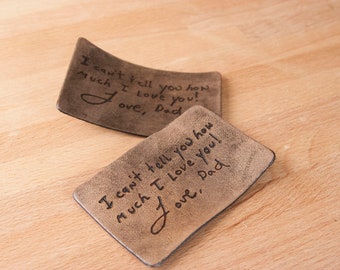 I can't tell you how
much I love you!
Love, Dad
I can't tell you how
much I love you!
Love, Dad